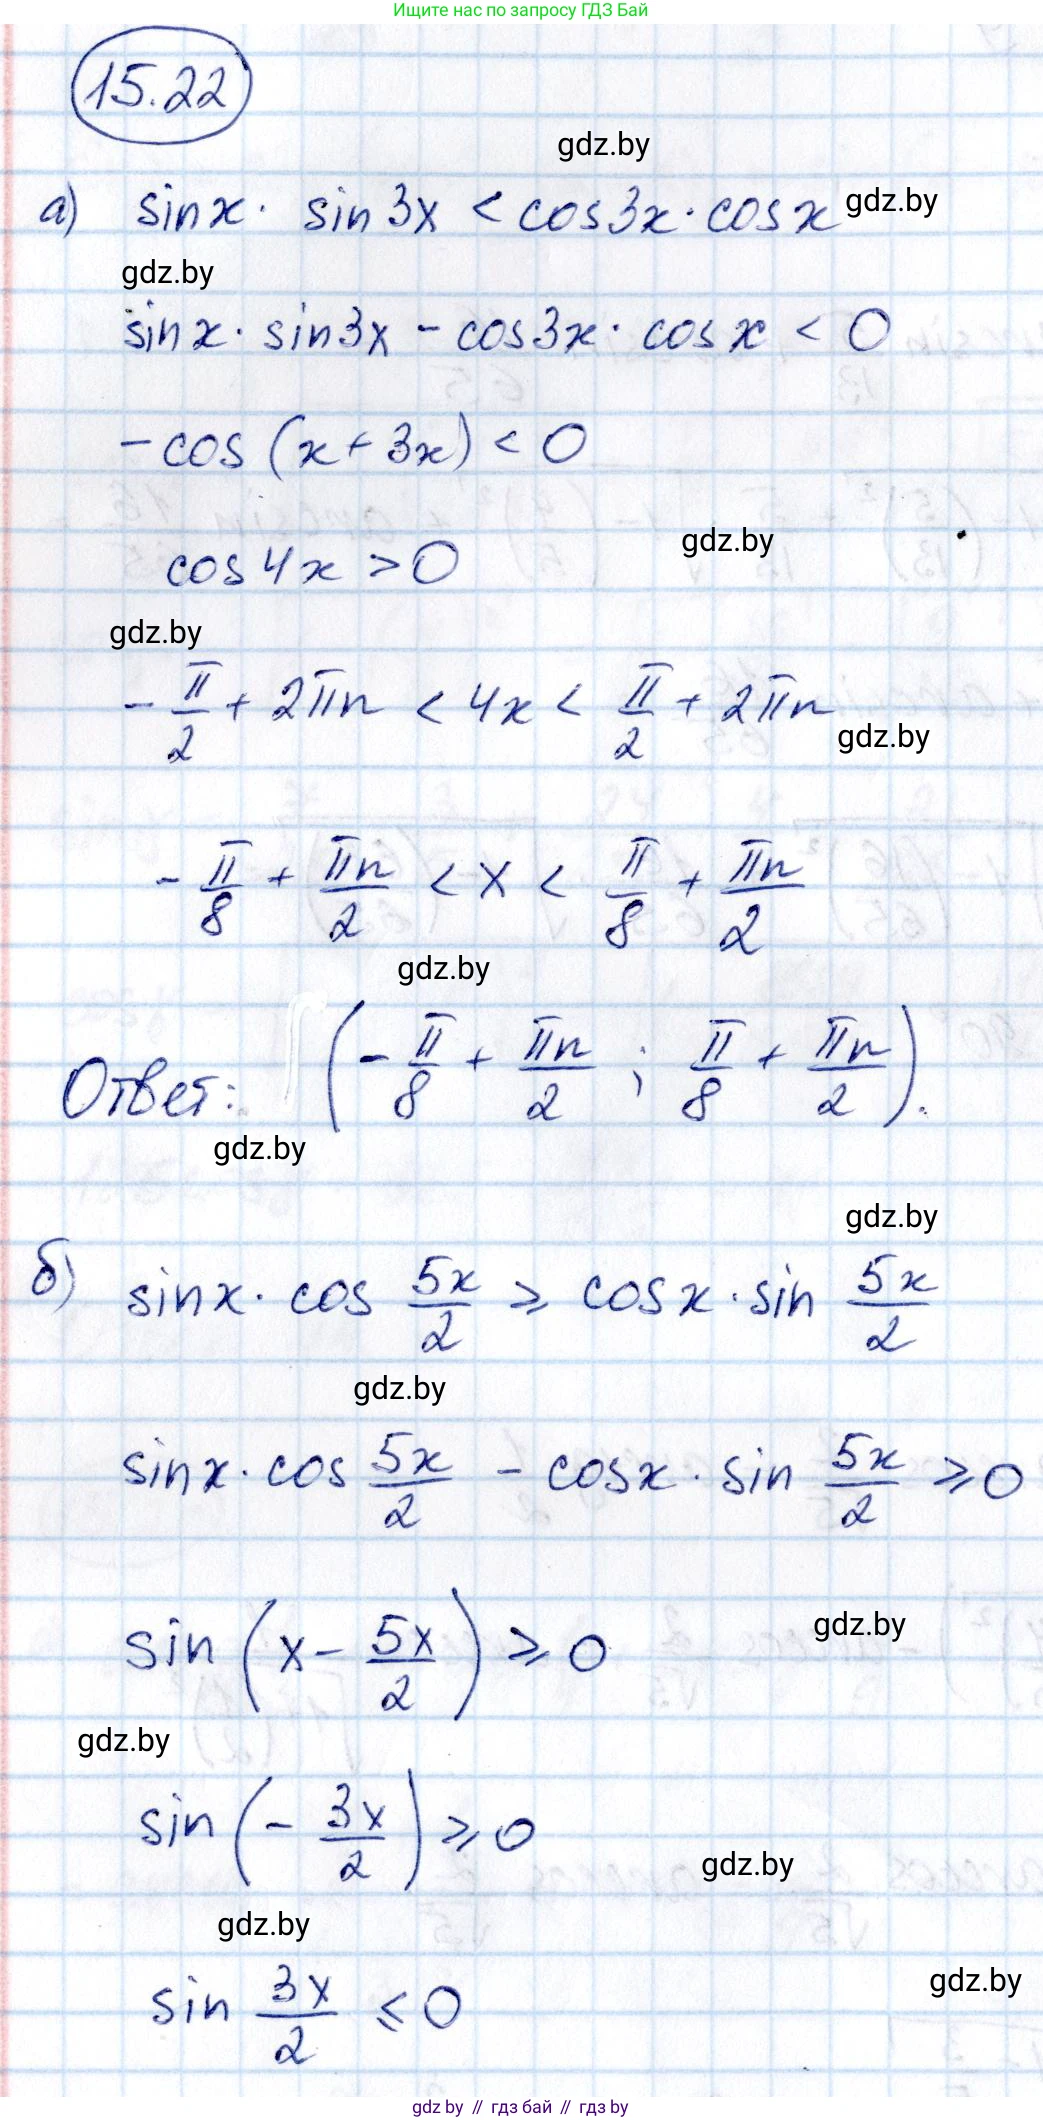 Ищите нас по запросу ГДЗ Бай
15.22
gdz.by
а) sinx · sin3x < cos3x · cosx gdz.by
gdz.by
sinx · sin3x - cos3x · cosx < 0
-cos(x+3x) < 0
gdz.by
cos4x > 0
gdz.by
-π/2 + 2πn < 4x < π/2 + 2πn
gdz.by
-π/8 + πn/2 < x < π/8 + πn/2
gdz.by
Ответ: (-π/8 + πn/2 ; π/8 + πn/2).
gdz.by
gdz.by
б) sinx · cos 5x/2 ⩾ cosx · sin 5x/2
gdz.by
sinx · cos 5x/2 - cosx · sin 5x/2 ⩾ 0
gdz.by
sin(x - 5x/2) ⩾ 0
gdz.by
sin(- 3x/2) ⩾ 0
gdz.by
gdz.by
gdz.by
sin 3x/2 ⩽ 0
gdz.by // гдз бай // гдз by